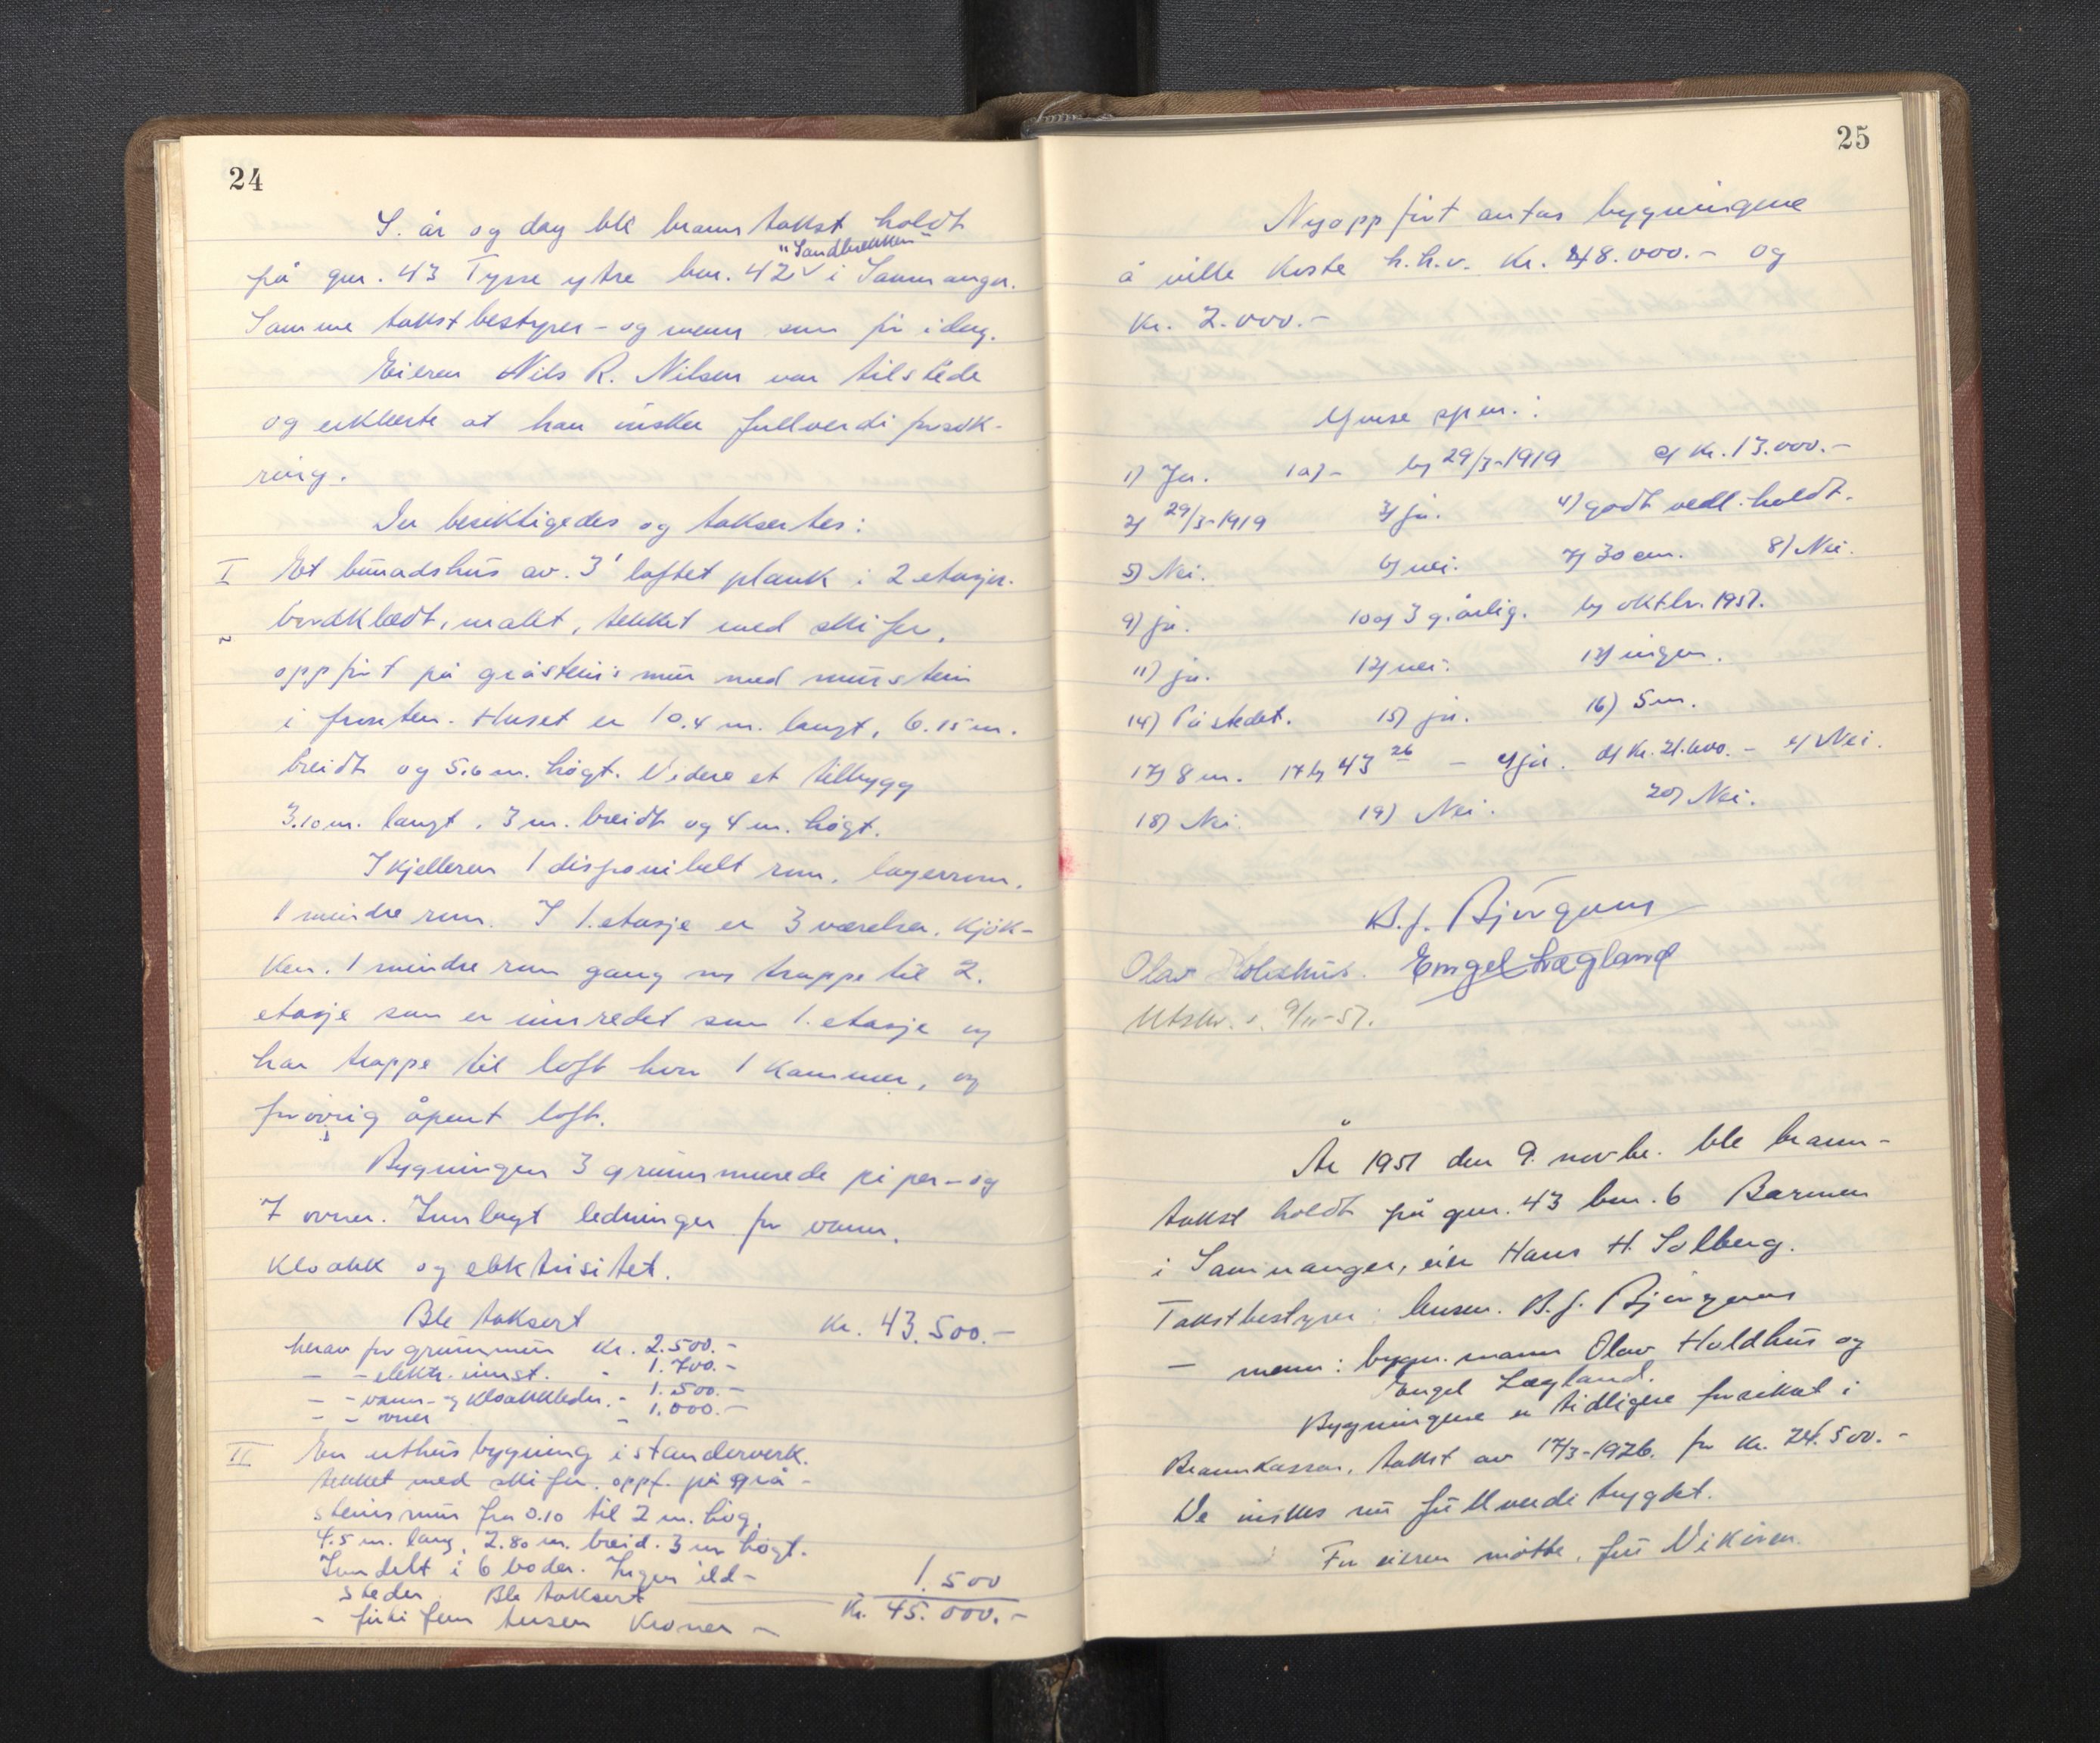 24
S. år og dag ble branntakst holdt
"Sandbrekken"
på gnr. 43 Tysse ytre bnr. 42 i Samnanger.
Samme takstbestyrer - og menn som før idag.
Eieren Nils R. Nilsen var tilstede
og erklærte at han ønsker fullverdi forsik-
ring.
Der besiktigedes og taksertes:
I Et bunadshus av 3" loftet plank i 2 etasjer.
bordklædt, malt, tekket med skifer,
oppført på gråsteinsmur med murstein
i fronten. Huset er 10.4 m. langt, 6.15 m.
breidt og 5.6 m. høgt. Videre et tilbygg
3.10 m. langt, 3 m. breidt og 4 m. høgt.
I kjelleren 1 disponibelt rum, lagerrum,
1 mindre rum. I 1. etasje er 3 værelser, kjøk-
ken, 1 mindre rum gang og trappe til 2.
etasje som er innredet som 1. etasje og
har trappe til loft hvor 1 kammer, og
forøvrig åpent loft.
Bygningen 3 grunnmurede piper - og
7 ovner. Innlagt ledninger for vann,
kloakk og elektrisitet.
Ble taksert Kr. 43.500.-
herav for grunnmur Kr. 2.500.-
- - elektr. innst. - 1.700.-
- - vann- og kloakkledn. - 1.500.-
- - ovner - 1.000.-
II En uthusbygning i standerverk.
tekket med skifer, oppf. på grå-
steinsmur fra 0.10 til 2 m. høg,
4.5 m. lang, 2.80 m. breid. 3 m høgt.
Inndelt i 6 boder. Ingen ild-
steder. Ble taksert 1.500
Kr. 45.000.-
- førti fem tusen Kroner -
25
Nyoppført antas bygningene
å ville koste h.h.v. Kr. 48.000.- og
Kr. 2.000.-
1) Ja. 1a) - b) 29/3-1919 c) Kr. 13.000.-
2) 29/3-1919 3) ja. 4) godt vedl.holdt.
5) Nei. 6) nei. 7) 30 cm. 8) Nei.
9) ja. 10a) 3 g. årlig. b) oktbr. 1951.
11) ja. 12) nei. 13) ingen.
14) På stedet. 15) ja. 16) 5 m.
17) 8 m. 17b) 43 26 - c) ja. d) Kr. 21.600.- e) Nei.
18) Nei. 19) Nei. 20) Nei.
B.J. Bjørgum
Olav Holdhus. Engel Lægland
Utskr. s. 9/11-51.
År 1951 den 9. novbr. ble brann-
takst holdt på gnr. 43 bnr. 6 Barmen
i Samnanger, eier Hans H. Solberg.
Takstbestyrer: lensm. B.J. Bjørgum
- menn: bygn.mann Olav Holdhus og
Engel Lægland.
Bygningene er tidligere forsikret i
Brannkassen, takst av 17/3-1926. for Kr. 24.500.-
De ønskes nu fullverdi trygdet.
For eieren møtte, fru Vikøren.